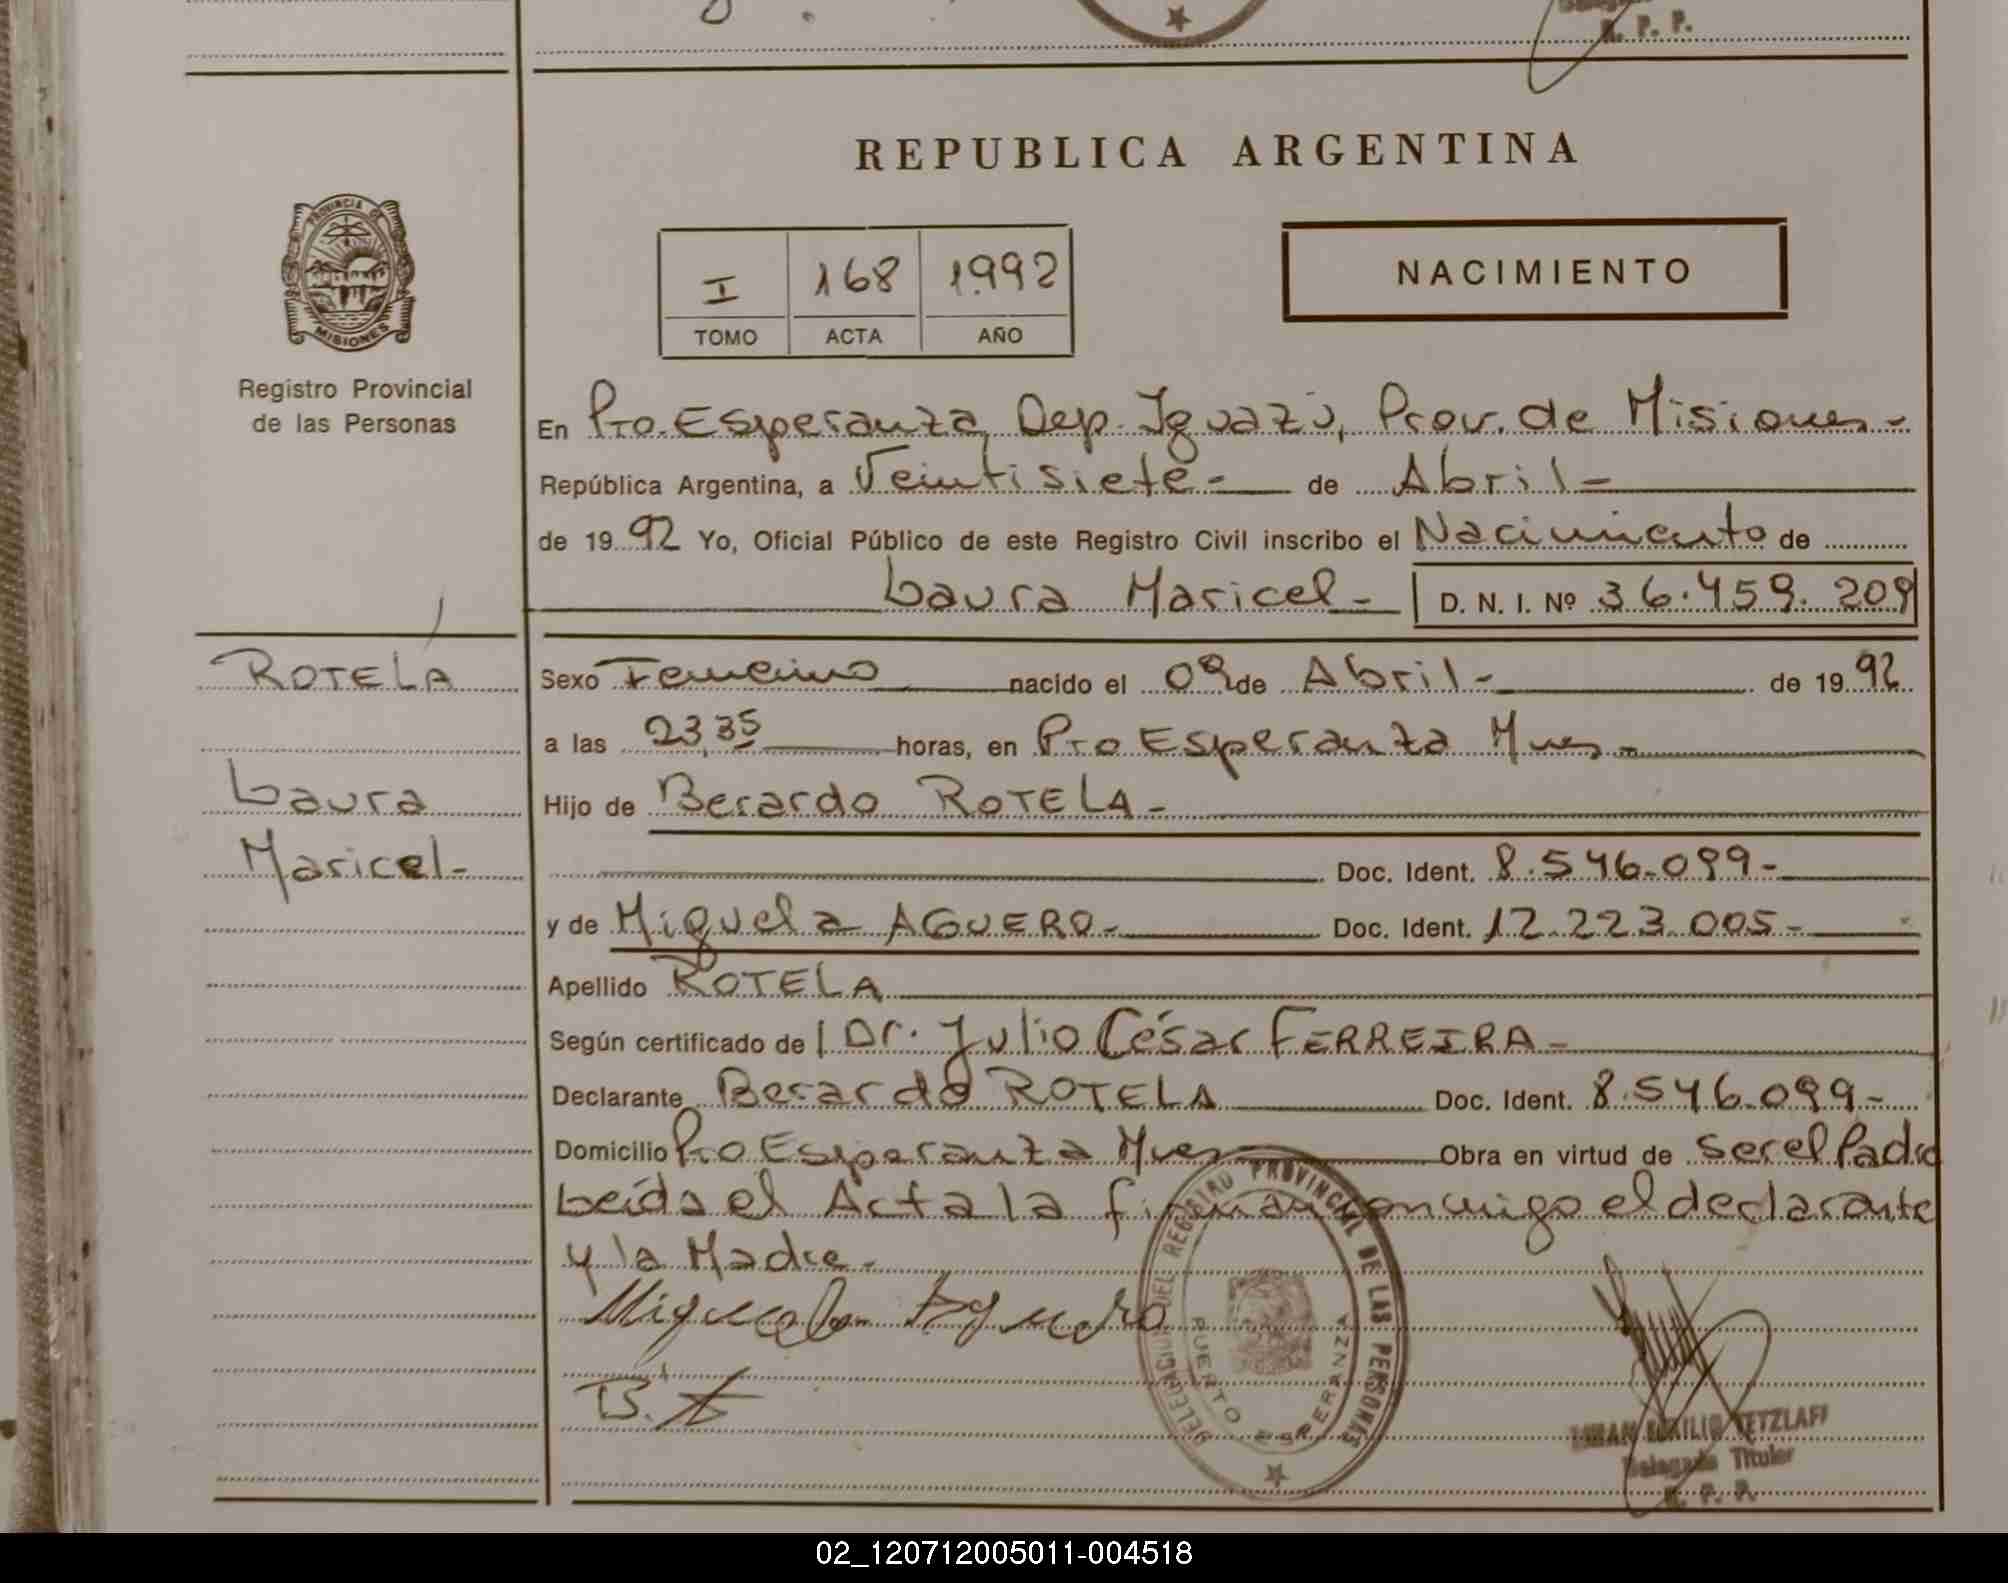 R. P. P.
REPUBLICA ARGENTINA
PROVINCIA DE
MISIONES
Registro Provincial
de las Personas
I 168 1992
TOMO ACTA AÑO
NACIMIENTO
En Pto. Esperanza, Dep. Iguazú, Prov. de Misiones-
República Argentina, a Veintisiete- de Abril-
de 1992 Yo, Oficial Público de este Registro Civil inscribo el Nacimiento de
Laura Maricel- D. N. I. Nº 36.459.209
ROTELA
Laura
Maricel-
Sexo Femenino nacido el 09 de Abril- de 1992
a las 23,35 horas, en Pto Esperanza Mnes-
Hijo de Berardo ROTELA-
Doc. Ident. 8.546.099-
y de Miguela AGUERO- Doc. Ident. 12.223.005-
Apellido ROTELA
Según certificado de Dr. Julio César FERREIRA-
Declarante Berardo ROTELA Doc. Ident. 8.546.099-
Domicilio Pto Esperanza Mnes Obra en virtud de ser el Padre
Leída el Acta la firman conmigo el declarante
y la Madre-
Miguela Aguero
B.
DELEGACION DEL REGISTRO PROVINCIAL DE LAS PERSONAS
PUERTO ESPERANZA
TETZLAFF
Delegado Titular
R. P. P.
02_120712005011-004518